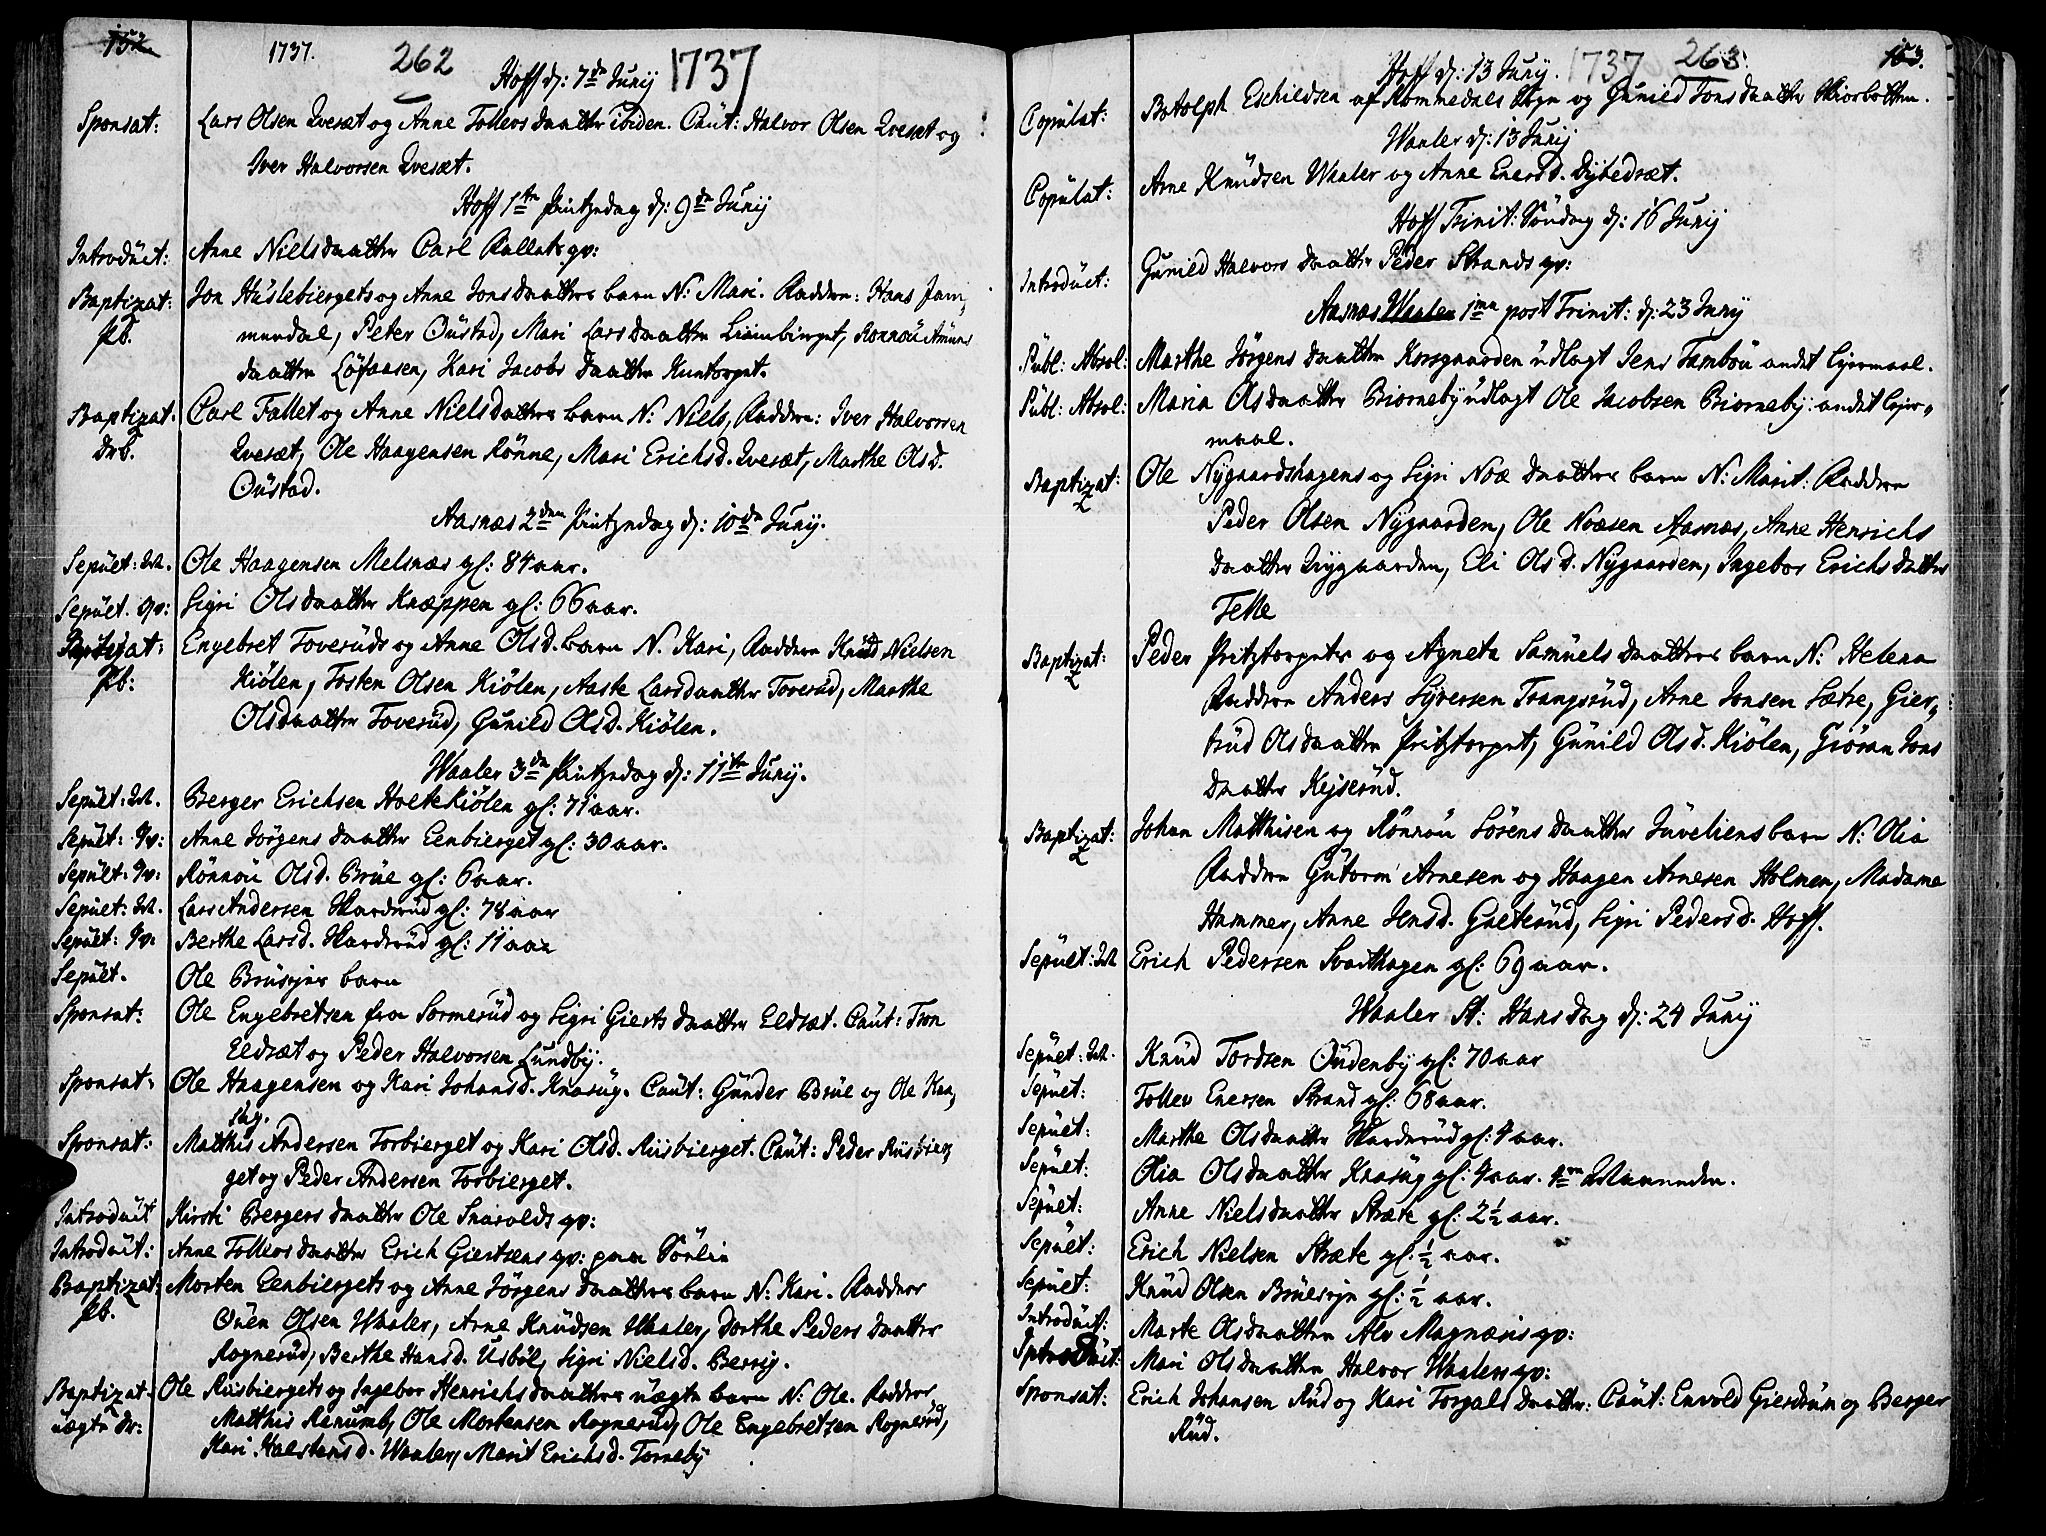 152
1737.
262
Hoff d: 7de Junij 1737
Sponsat: Lars Olsen Qvesæt og Anne Tollevs daatter ibiden. Caut: Halvor Olsen Qvesæt og
Iver Halvorsen Qvesæt.
Hoff 1te Pintzedag d: 9de Junij
Introduct: Anne Nielsdaatter Carl Kallets qv:
Baptizat: Jon Huslebiergets og Anne Jons daatters barn N: Mari. Faddere: Hans Jam,
Pb. merdal, Peter Oustad, Mari Lars daatter Liimbierget, Rønnou Amuns
daatter Löfaasen, Kari Jacobs daatter Kuntorpet.
Baptizat: Carl Fallet og Anne Nielsdatters barn N: Niels, Faddere: Iver Halvorsen
Drb. Qvesæt, Ole Haagensen Rönne, Mari Erichsd. Qvesæt, Marthe Olsd.
Oustad.
Aasnæs 2den Pintzedag d: 10de Junij.
Sepult: M. Ole Haagensen Melsnæs gl: 84 aar.
Sepult. qv: Sigri Olsdaatter Knappen gl: 66 aar.
Baptizat: Engebret Toveruds og Anne Olsd. barn N. Kari, Faddere Knud Nielsen
Pb: Kiölen, Tosten Olsen Kiölen, Aaste Larsdaatter Toverud, Marthe
Olsdaatter Toverud, Gunild Olsd. Kiölen.
Waaler 3die Pintzedag d: 11te Junij.
Sepult: M. Berger Erichsen Holtekiölen gl: 71 aar.
Sepult: qv: Anne Jörgens daatter Eenbierget gl: 30 aar.
Sepult: qv: Rönnou Olsd. Brue gl: 6 aar.
Sepult: M. Lars Andersen Skarderud gl: 78 aar
Sepult: qv: Berthe Larsd. Skarderud gl: 11 aar
Sepult. Ole Brusejes barn
Sponsat: Ole Engebretsen fra Sormerud og Sigri Gierts daatter Eldsæt. Caut: Tron
Eldsæt og Peder Halvorsen Lundby.
Sponsat: Ole Haagensen og Kari Johansd. Knasug. Caut: Gunder Brue og Ole Kna,
sug.
Sponsat: Matthis Andersen Torbierget og Kari Olsd. Riisbierget. Caut: Peder Riisbier,
get og Peder Andersen Torbierget.
Introduct Kirsti Bergers daatter Ole Snarolds qv:
Introduct: Anne Tollevs daatter Erich Giertsens qv: paa Sörlie
Baptizat: Morten Eenbiergets og Anne Jörgens daatters barn N: Kari. Faddere
Pb. Ouen Olsen Waaler, Arne Knudsen Waaler, Dorthe Peders daatter
Rognerud, Berthe Hansd. Usböl, Sigri Nielsd. Berrig.
Baptizat. Ole Riisbiergets og Ingebor Henrichs daatters uægte barn N: Ole. Faddere
uægte dr: Matthis Ranumb, Ole Mortensen Rognerud, Ole Engebretsen Rognerud,
Kari Halstensd. Waaler, Marit Erichsd. Torneby
153.
Hoff d: 13 Junij. 1737 263
Copulat: Botolph Eschildsen af Rommedals Sogn og Gunild Jons daatter Skiorbotten.
Waaler d: 13 Junij
Copulat: Arne Knudsen Waaler og Anne Enersd. Dybedræt.
Hoff Trinit: Söndag d: 16 Junij
Introduct: Gunild Halvors daatter Peder Strands qv:
Aasnæs Waaler 1ma post Trinit: d: 23 Junij
Publ: Absol: Marthe Jörgens daatter Korsgaarden udlagt Jens Tambou andet leyermaal.
Publ: Absol: Maria Olsdaatter Biorneby udlagt Ole Jacobsen Biorneby andet leyer,
maal.
Baptizat: Ole Nygaardshagens og Sigri Noæ daatters barn N: Marit: Faddere
Peder Olsen Nygaarden, Ole Noæsen Aasnæs, Anne Henrichs
daatter Nygaarden, Eli Olsd. Nygaarden, Ingebor Erichs datter
Telle
Baptizat: Peder Pritztorpets og Agneta Samuels daatters barn N: Helena
Faddere Anders Syversen Trangsrud, Arne Jonsen Sætre, Gier,
trud Olsdaatter Pritztorpet, Gunild Olsd. Kiölen, Giöran Jons
daatter Kejserud.
Baptizat: Johan Matthisen og Rönnou Sörens daatter Juveliens barn N: Olia
Faddere Gutorm Arnesen og Haagen Arnesen Holmen, Madame
Hammer, Anne Jensd. Grueterud, Sigri Pedersd. Hoff.
Sepult: M Erich Pedersen Svarthagen gl: 69 aar.
Waaler St: Hans dag d: 24 Junij
Sepult: M. Knud Tordsen Oudenby gl: 70 aar
Sepult: Tollev Enersen Strand gl: 68 aar.
Sepult: Marthe Olsdaatter Skarderud gl: 4 aar.
Sepult: Olia Olsdaatter Knasug gl: 4 aar. 4re Maaneder.
Sepult: Anne Nielsdaatter Stræte gl: 2½ aar.
Sepult: Erich Nielsen Stræte gl: ½ aar.
Sepult: Knud Olsen Brueseje gl: ½ aar.
Introduct: Marte Olsdaatter Alv Magnæris qv:
Introduct: Mari Olsdaatter Halvor Waalers qv:
Sponsat: Erich Johansen Rud og Kari Torgals daatter: Caut: Envold Gierdrum og Berger
Rud.